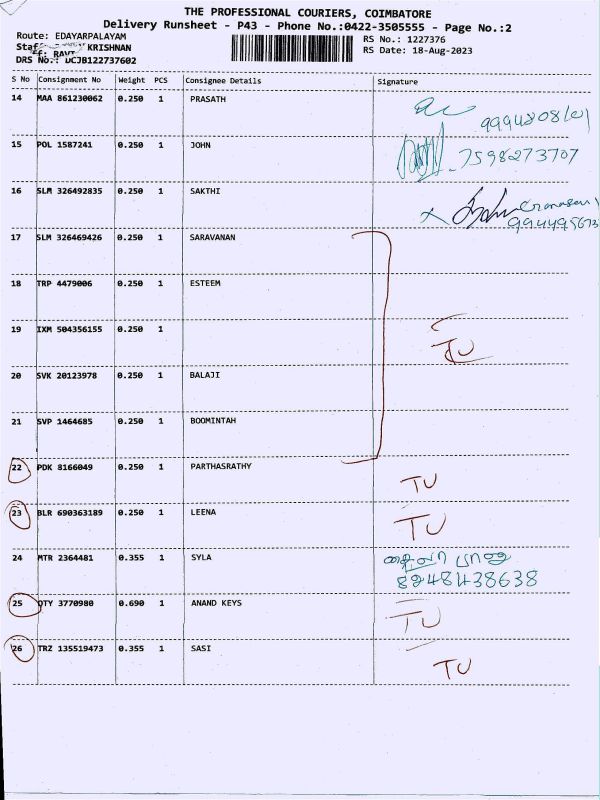 THE PROFESSIONAL COURIERS, COIMBATORE
Delivery Runsheet - P43 - Phone No.:0422-3505555 - Page No.:2
Route: EDAYARPALAYAM
RS No.: 1227376
Staff: RAVI KRISHNAN
RS Date: 18-Aug-2023
DRS No.: DCJB122737602
S No Consignment No Weight PCS Consignee Details Signature
14 MAA 861230062 0.250 1 PRASATH
15 POL 1587241 0.250 1 JOHN 7598273707
16 SLM 326492835 0.250 1 SAKTHI
17 SLM 326469426 0.250 1 SARAVANAN
18 TRP 4479006 0.250 1 ESTEEM
19 IXM 504356155 0.250 1 TU
20 SVK 20123978 0.250 1 BALAJI
21 SVP 1464685 0.250 1 BOOMINTAH
22 PDK 8166049 0.250 1 PARTHASRATHY TU
23 BLR 690363189 0.250 1 LEENA TU
24 MTR 2364481 0.355 1 SYLA 8248438638
25 OTY 3770980 0.690 1 ANAND KEYS TU
26 TRZ 135519473 0.355 1 SASI TU